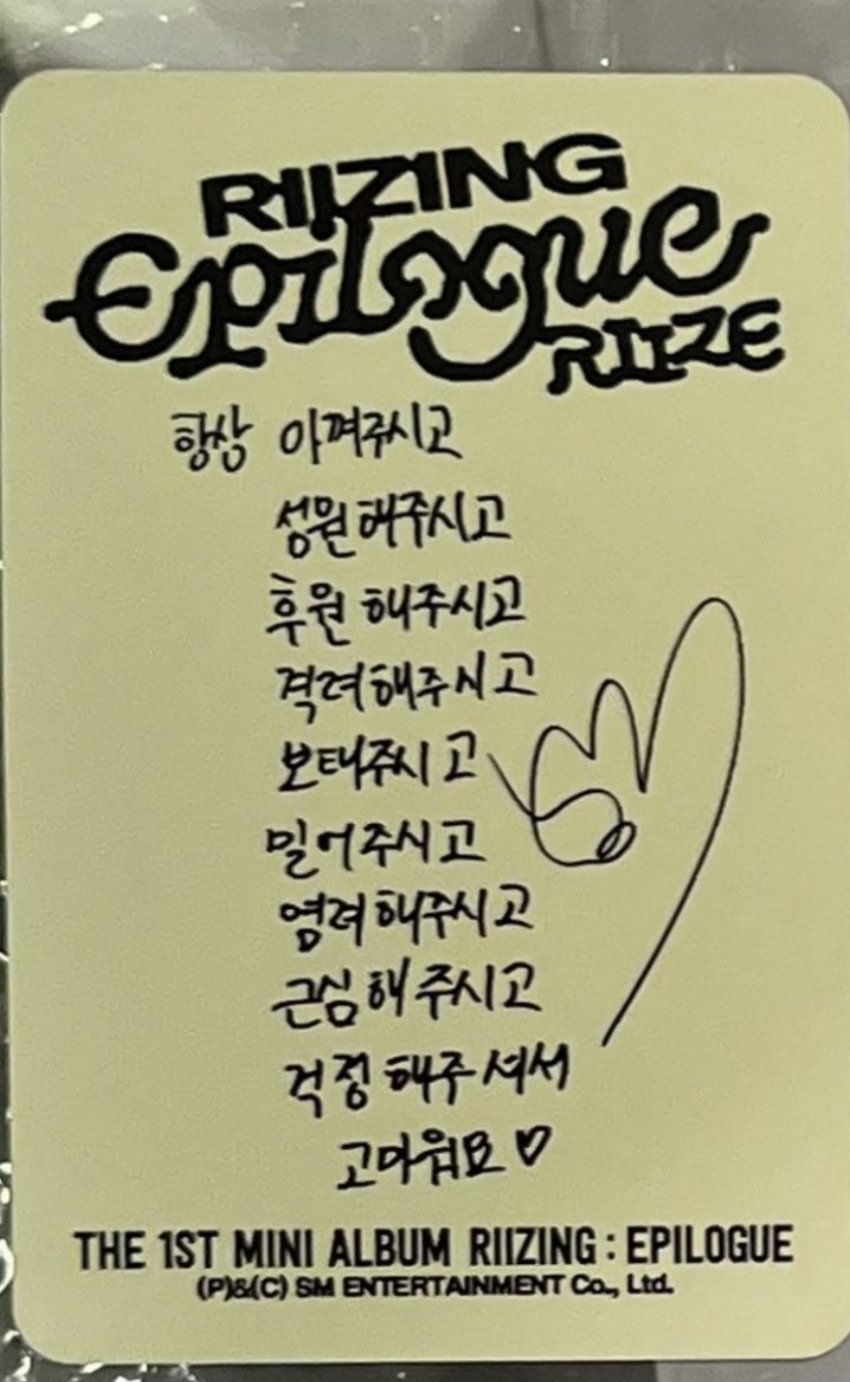 RIIZING
Epilogue
RIIZE
항상 아껴주시고
성원해주시고
후원 해주시고
격려해주시고
보태주시고
밀어주시고
염려해주시고
근심해주시고
걱정해주셔서
고마워요♡
THE 1ST MINI ALBUM RIIZING : EPILOGUE
(P)&(C) SM ENTERTAINMENT Co., Ltd.